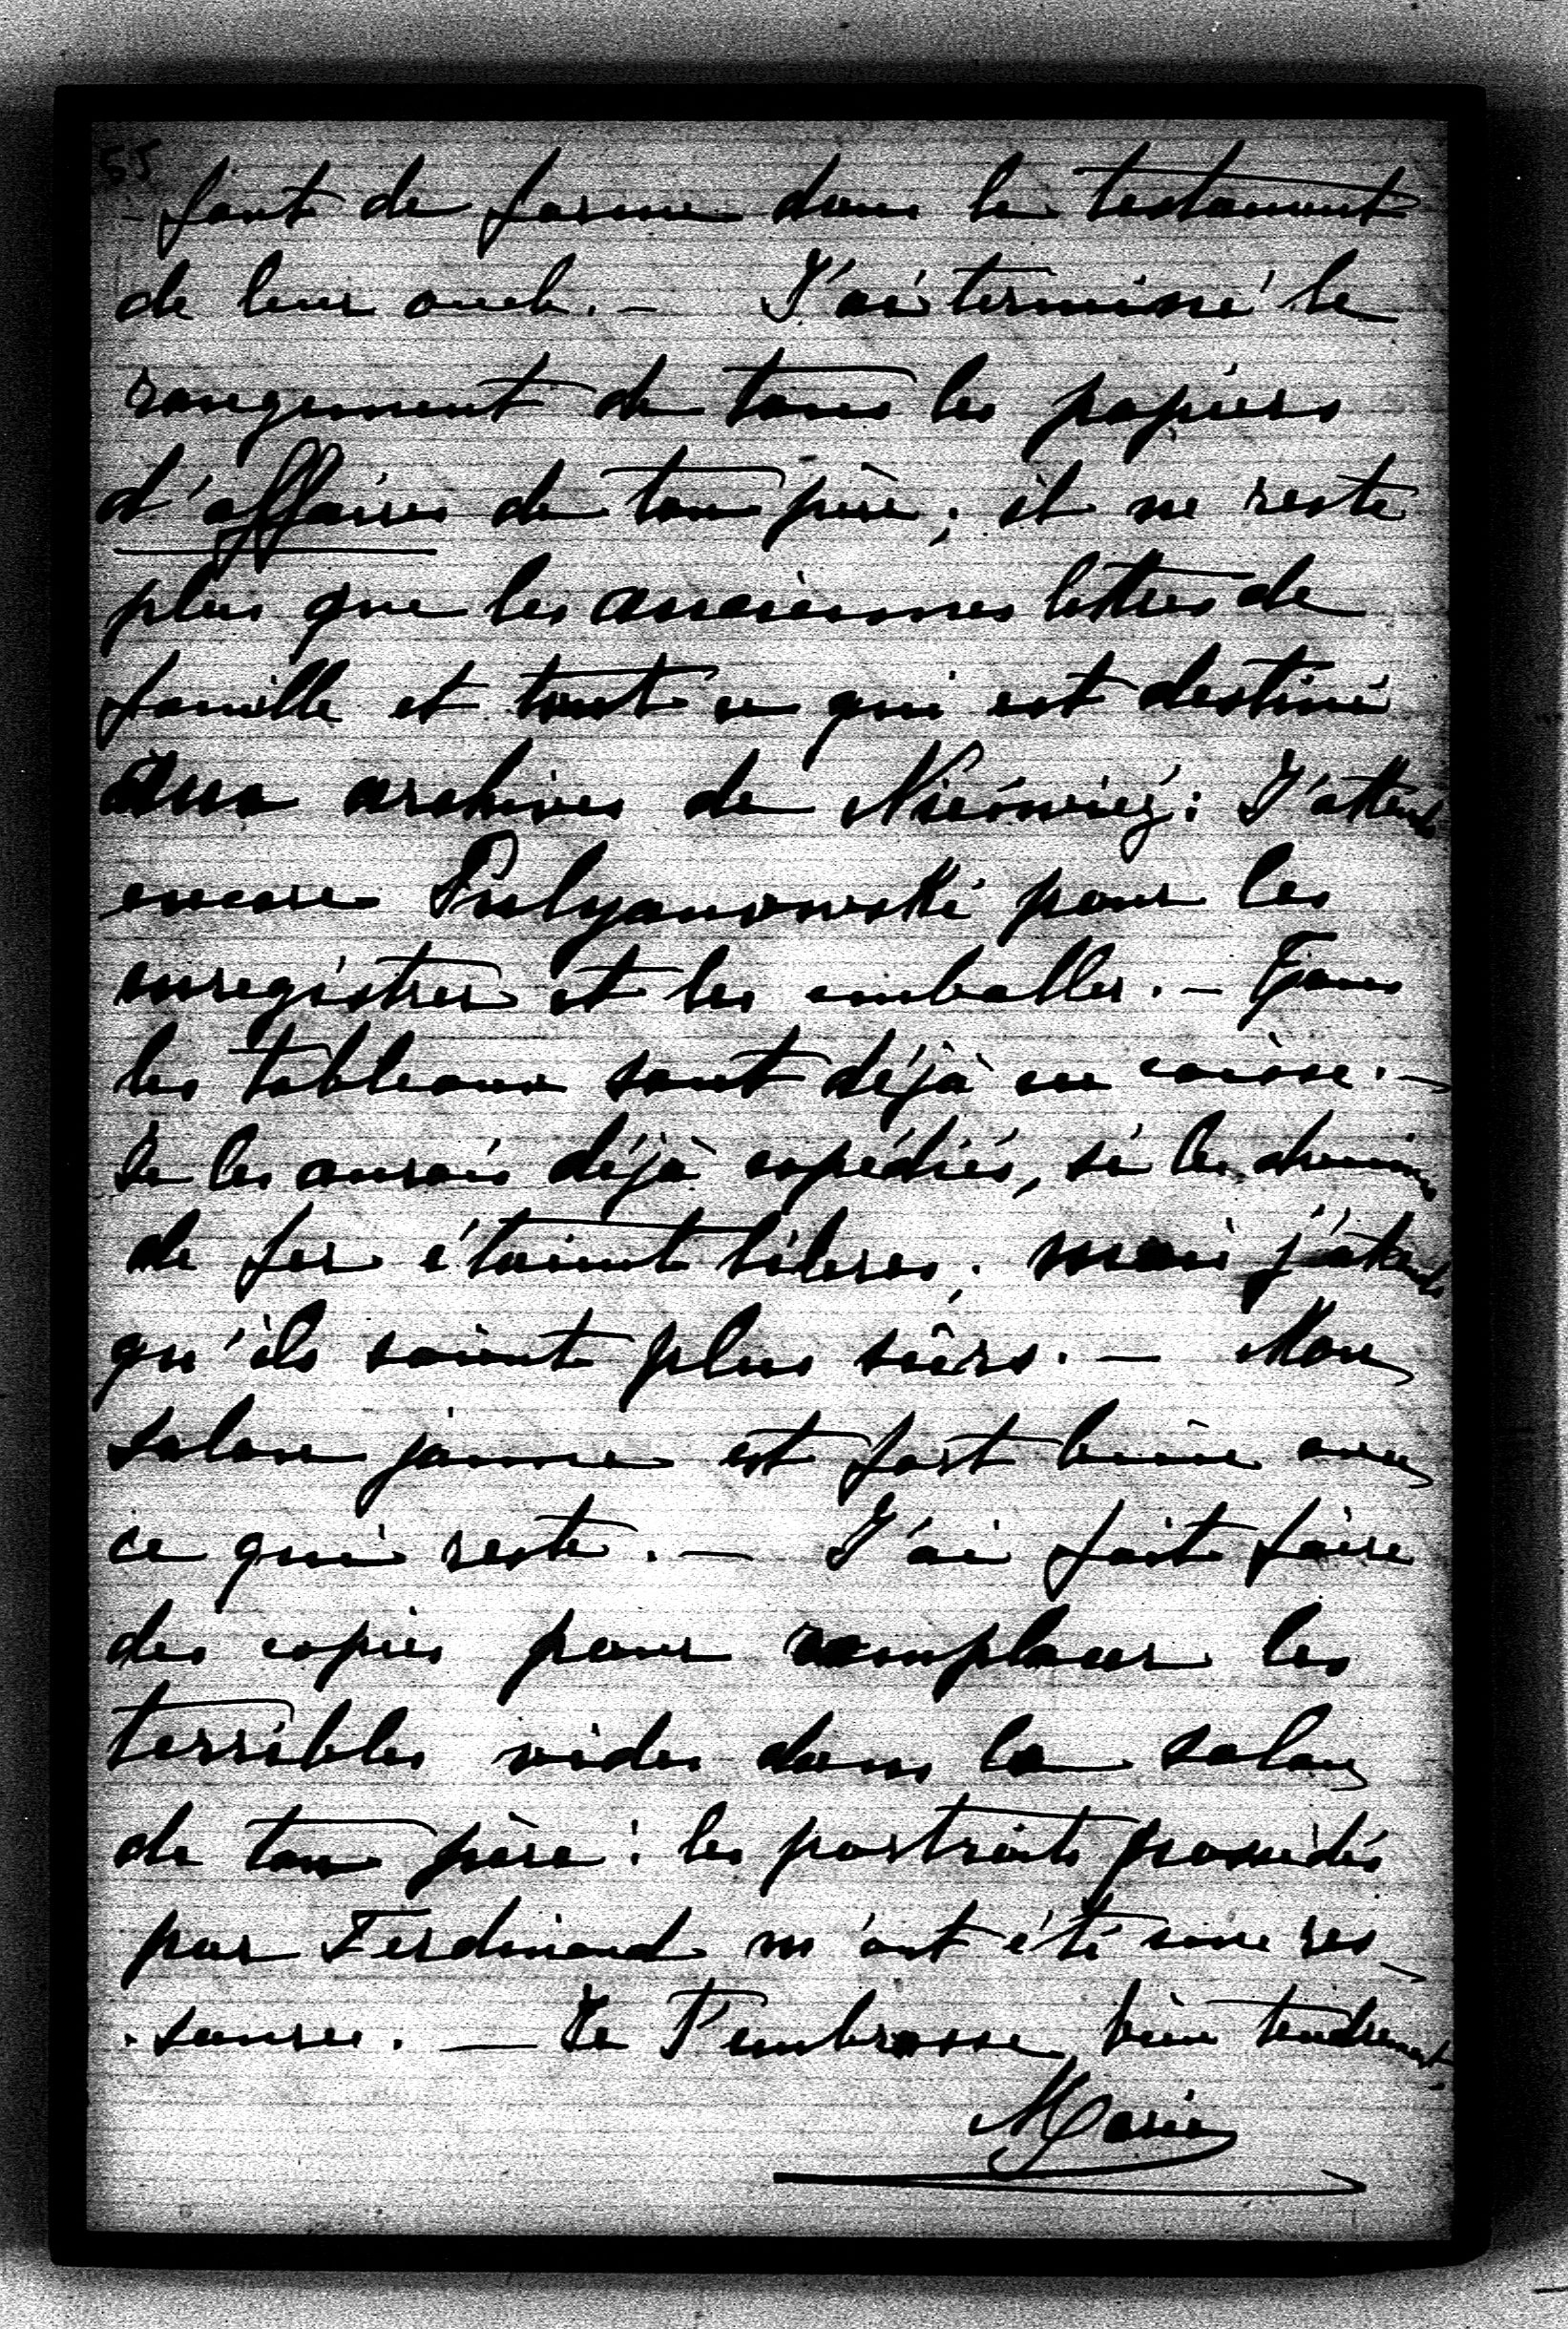 55
faut de forme dans le testament
de leur oncle. — J'ai terminé le
rangement de tous les papiers
d'affaires de ton père; il ne reste
plus que les anciennes lettres de
famille et tout ce qui est destiné
aux archives de Nieświéż: J'attends
encore Pulyanowski pour les
enregistrer et les emballer. — Tous
les tableaux sont déjà en caisse. —
Je les aurais déjà expédiés, si les chemins
de fer étaient libres, mais j'attends
qu'ils soient plus sûrs. — Mon
salon jaune est fort bien avec
ce qui reste. — J'ai fait faire
des copies pour remplacer les
terribles vides dans le salon
de ton père: les portraits possédés
par Ferdinand m'ont été une res-
-source. — Je t'embrasse bien tendrement.
Marie